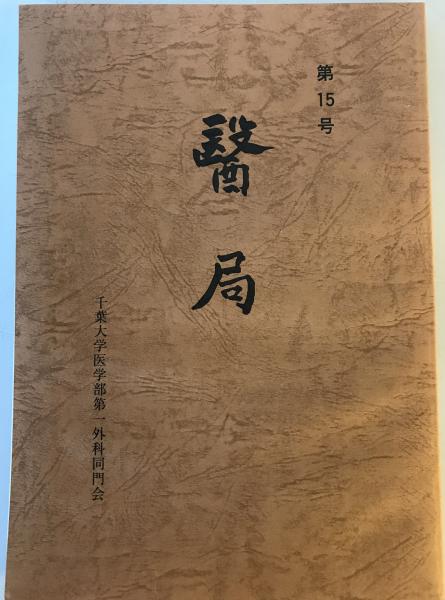 第15号
醫局
千葉大学医学部第一外科同門会